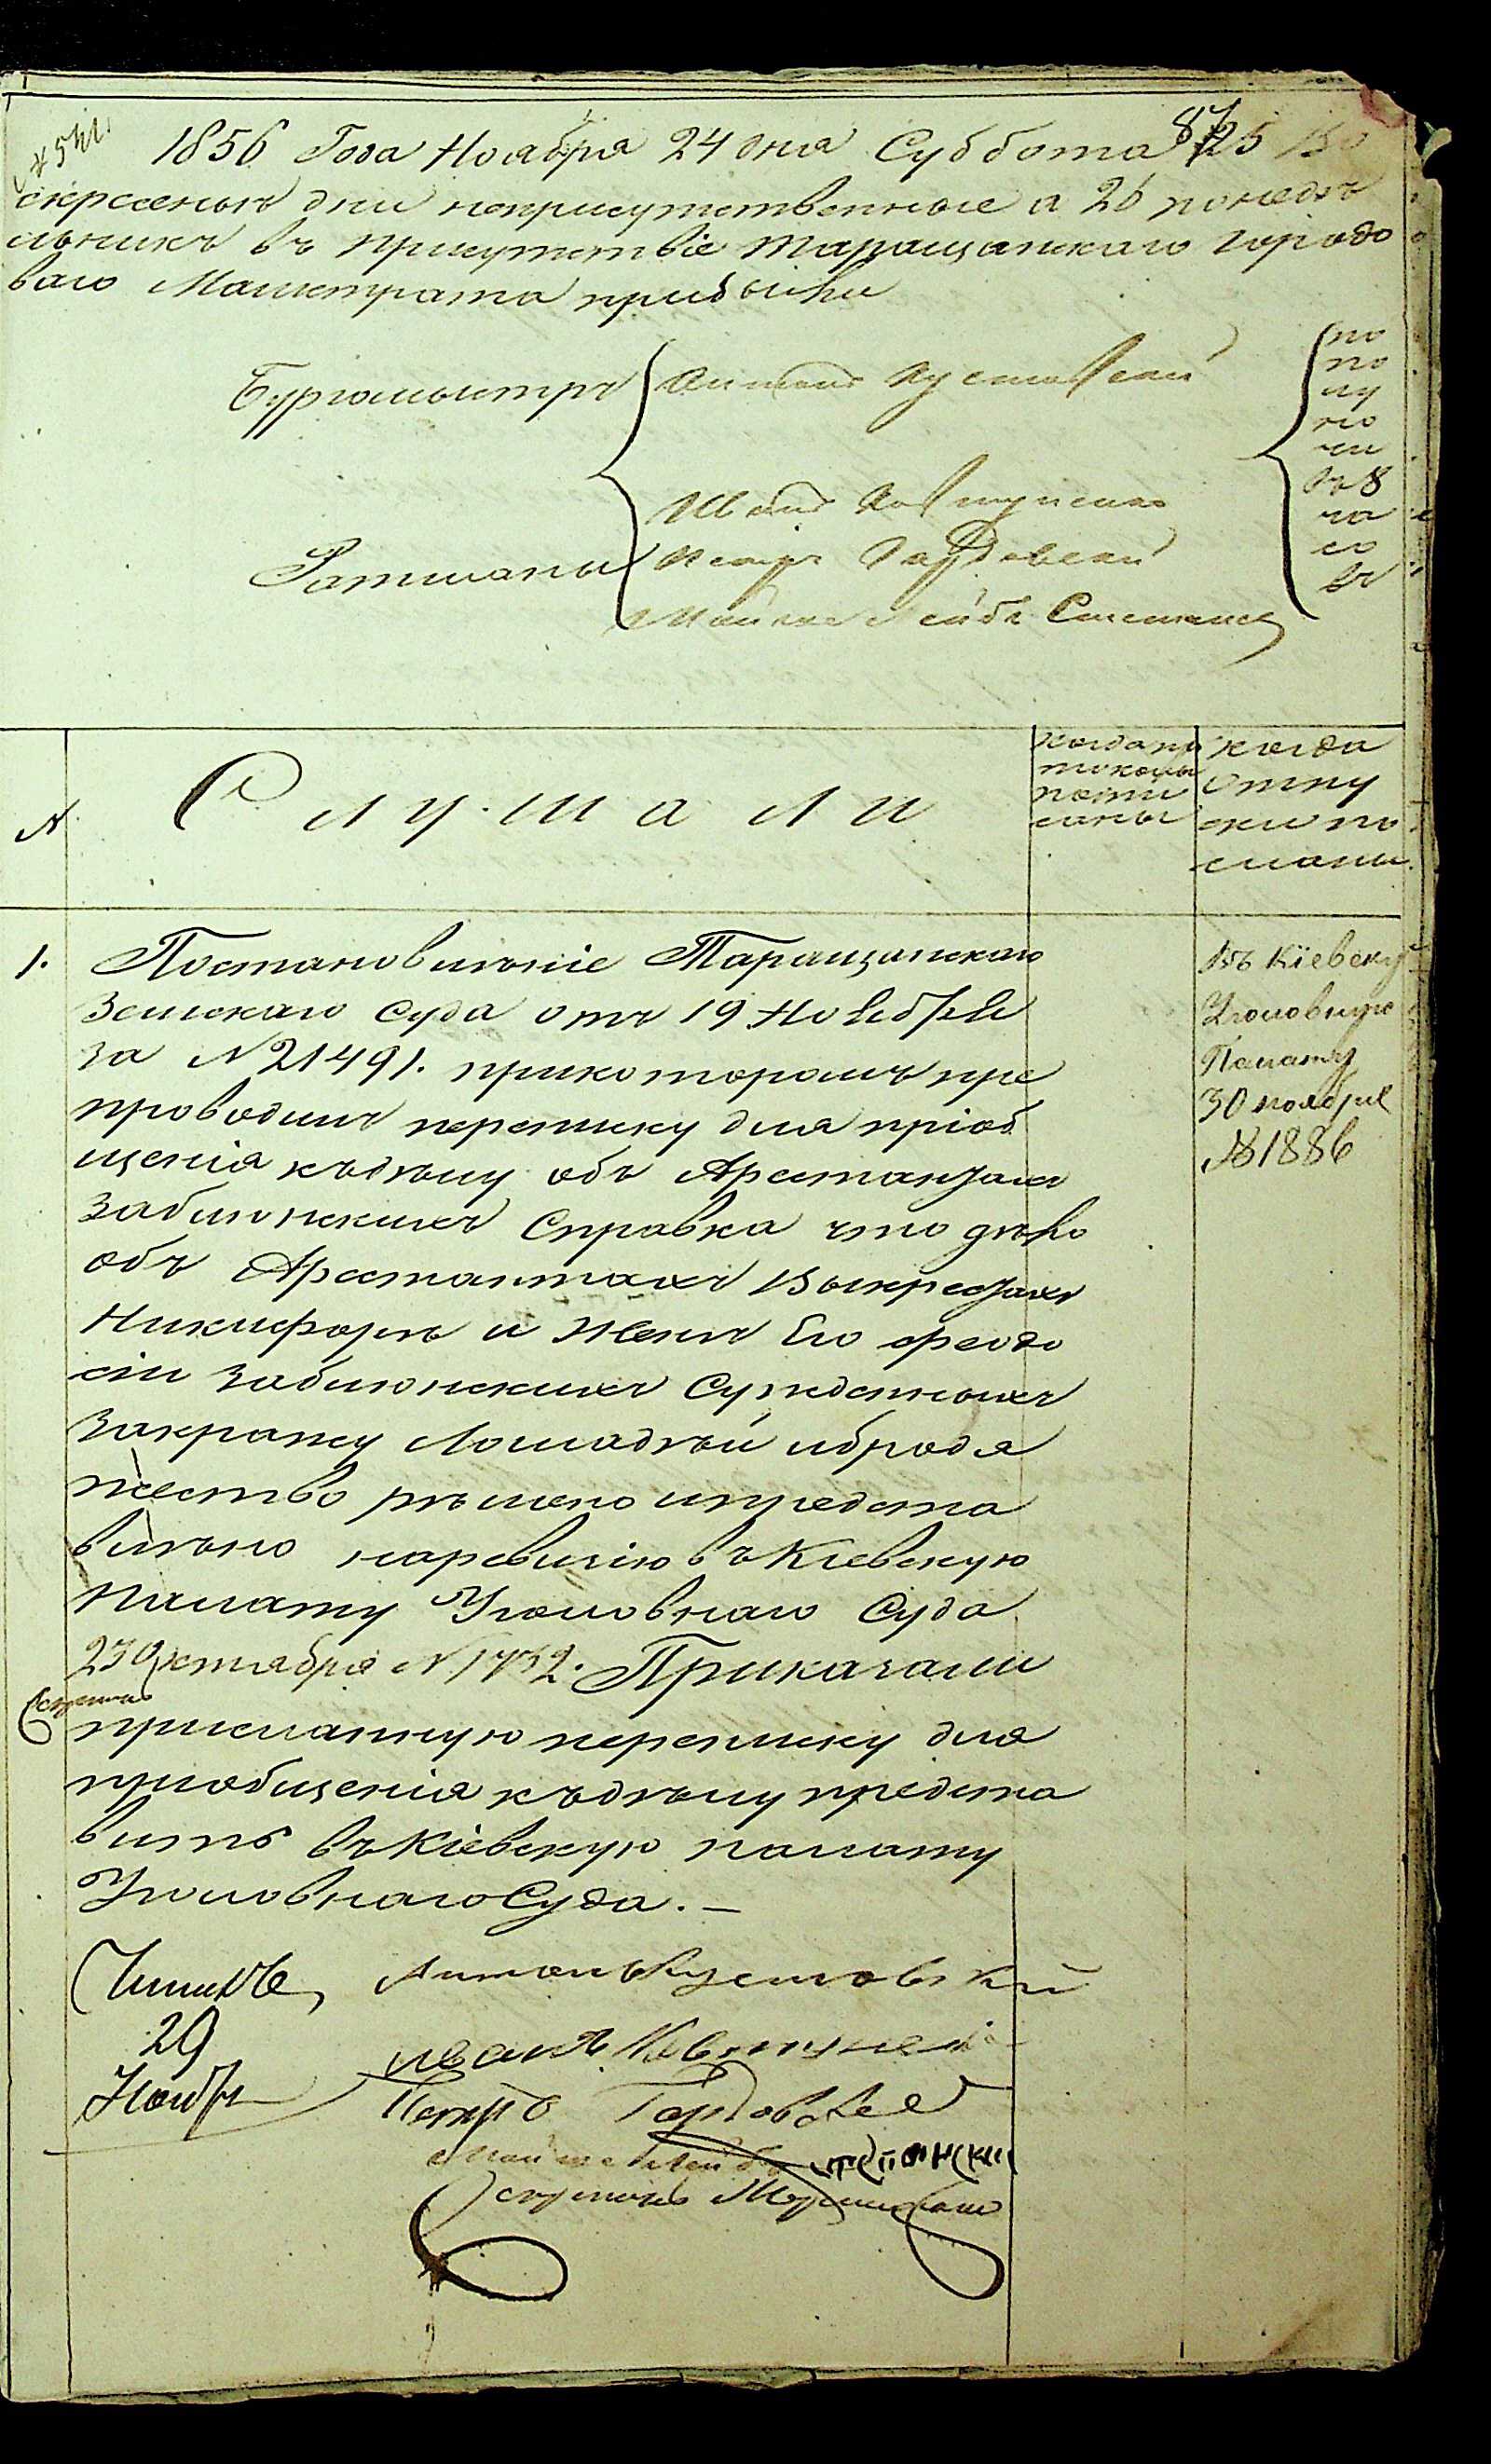 87
1856 Года Ноября 24 дня Суббота и 25 Во
скресенья дни неприсутственные а 26 понедѣ
льникъ въ присутствіе Таращанскаго городо
ваго Магистрата прибыли
Бургомистръ
Антонъ Кустовскій
Ратманы
Иванъ Ковтуненко
Петръ Гордовскій
Мошко Лейба
по
по
лу
но
чи
въ 8
ча
со
въ
№
Слушали
когда про
токолы
подпи
саны
когда
отпу
ски по
сланы
1.
Постановленіе Таращанскаго
Земскаго Суда отъ 19 Ноября
за № 21491. прикоторомъ пре
проводилъ переписку для пріоб
щенія къдѣлу объ Арестантахъ
Заблонскихъ Справка что дѣло
объ Арестантахъ Выкрестахъ
Никифорѣ и Женѣ Его Феодо
сіи Заблонскихъ Сужденныхъ
закражу Лошадѣй ибродя
жество рѣшено ипредста
влѣно наревизію въКіевскую
Палату Уголовнаго Суда
23 Октября № 1732. Приказали
присланную переписку для
пріобщенія къдѣлу предста
вить въКіевскую палату
УголовнагоСуда. —
Въ Кіевскую
Уголовную
Палату
30 ноября
№ 1886
29
Ноября
Антонъ Кустовскій
иванъ Ковтуненко
Петръ Гордовскій
Мошко Лейба